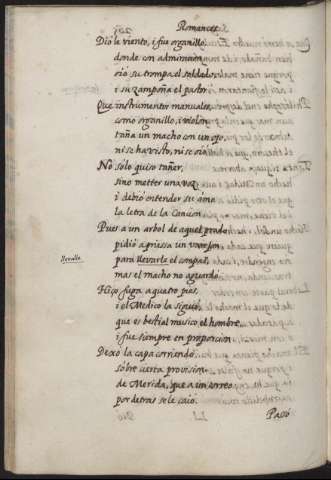 Romances.
Dio le viento, i fue organillo,
donde con admiracion
oió su trompa el soldado,
i su zampoña el pastor.
Que instrumentos manuales,
como organillo, i violon
taña un macho con un ojo,
ni se ha visto, ni se oió.
No solo quiso tañer,
sino metter una voz
i debió entender su amo
la letra de la Cancion.
Pues a un arbol de aquel prado
pidió apriessa un varejon
para llevarle el compas,
llevalle
mas el macho no aguardó.
Hiço fuga a quatro pies
i el Medico la siguió,
que es bestial musico el hombre,
i fue siempre en proporcion.
Dexó la capa corriendo
sobre cierta provision
de Merida, que a un arreo
por detras se le caió.
Passó